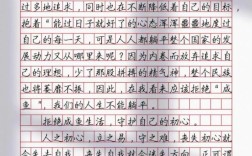 过多地追求，同时也在不断降低着自己的目标
抱着“能过日子就好了的心态浑浑噩噩地度过
自己的每一天，可是人人都躺平整个国家的发
展动力又从哪里来呢？因为内卷而放弃追求自
己的理想，少了那股拼搏的精气神，整个民族
也将萎靡不振。因此，在我看来应该拒绝“咸
鱼”，我们的人生不能躺平。
拒绝咸鱼生活，守护自己的初心。
人之初心，立之易，守之难，丧失初心就